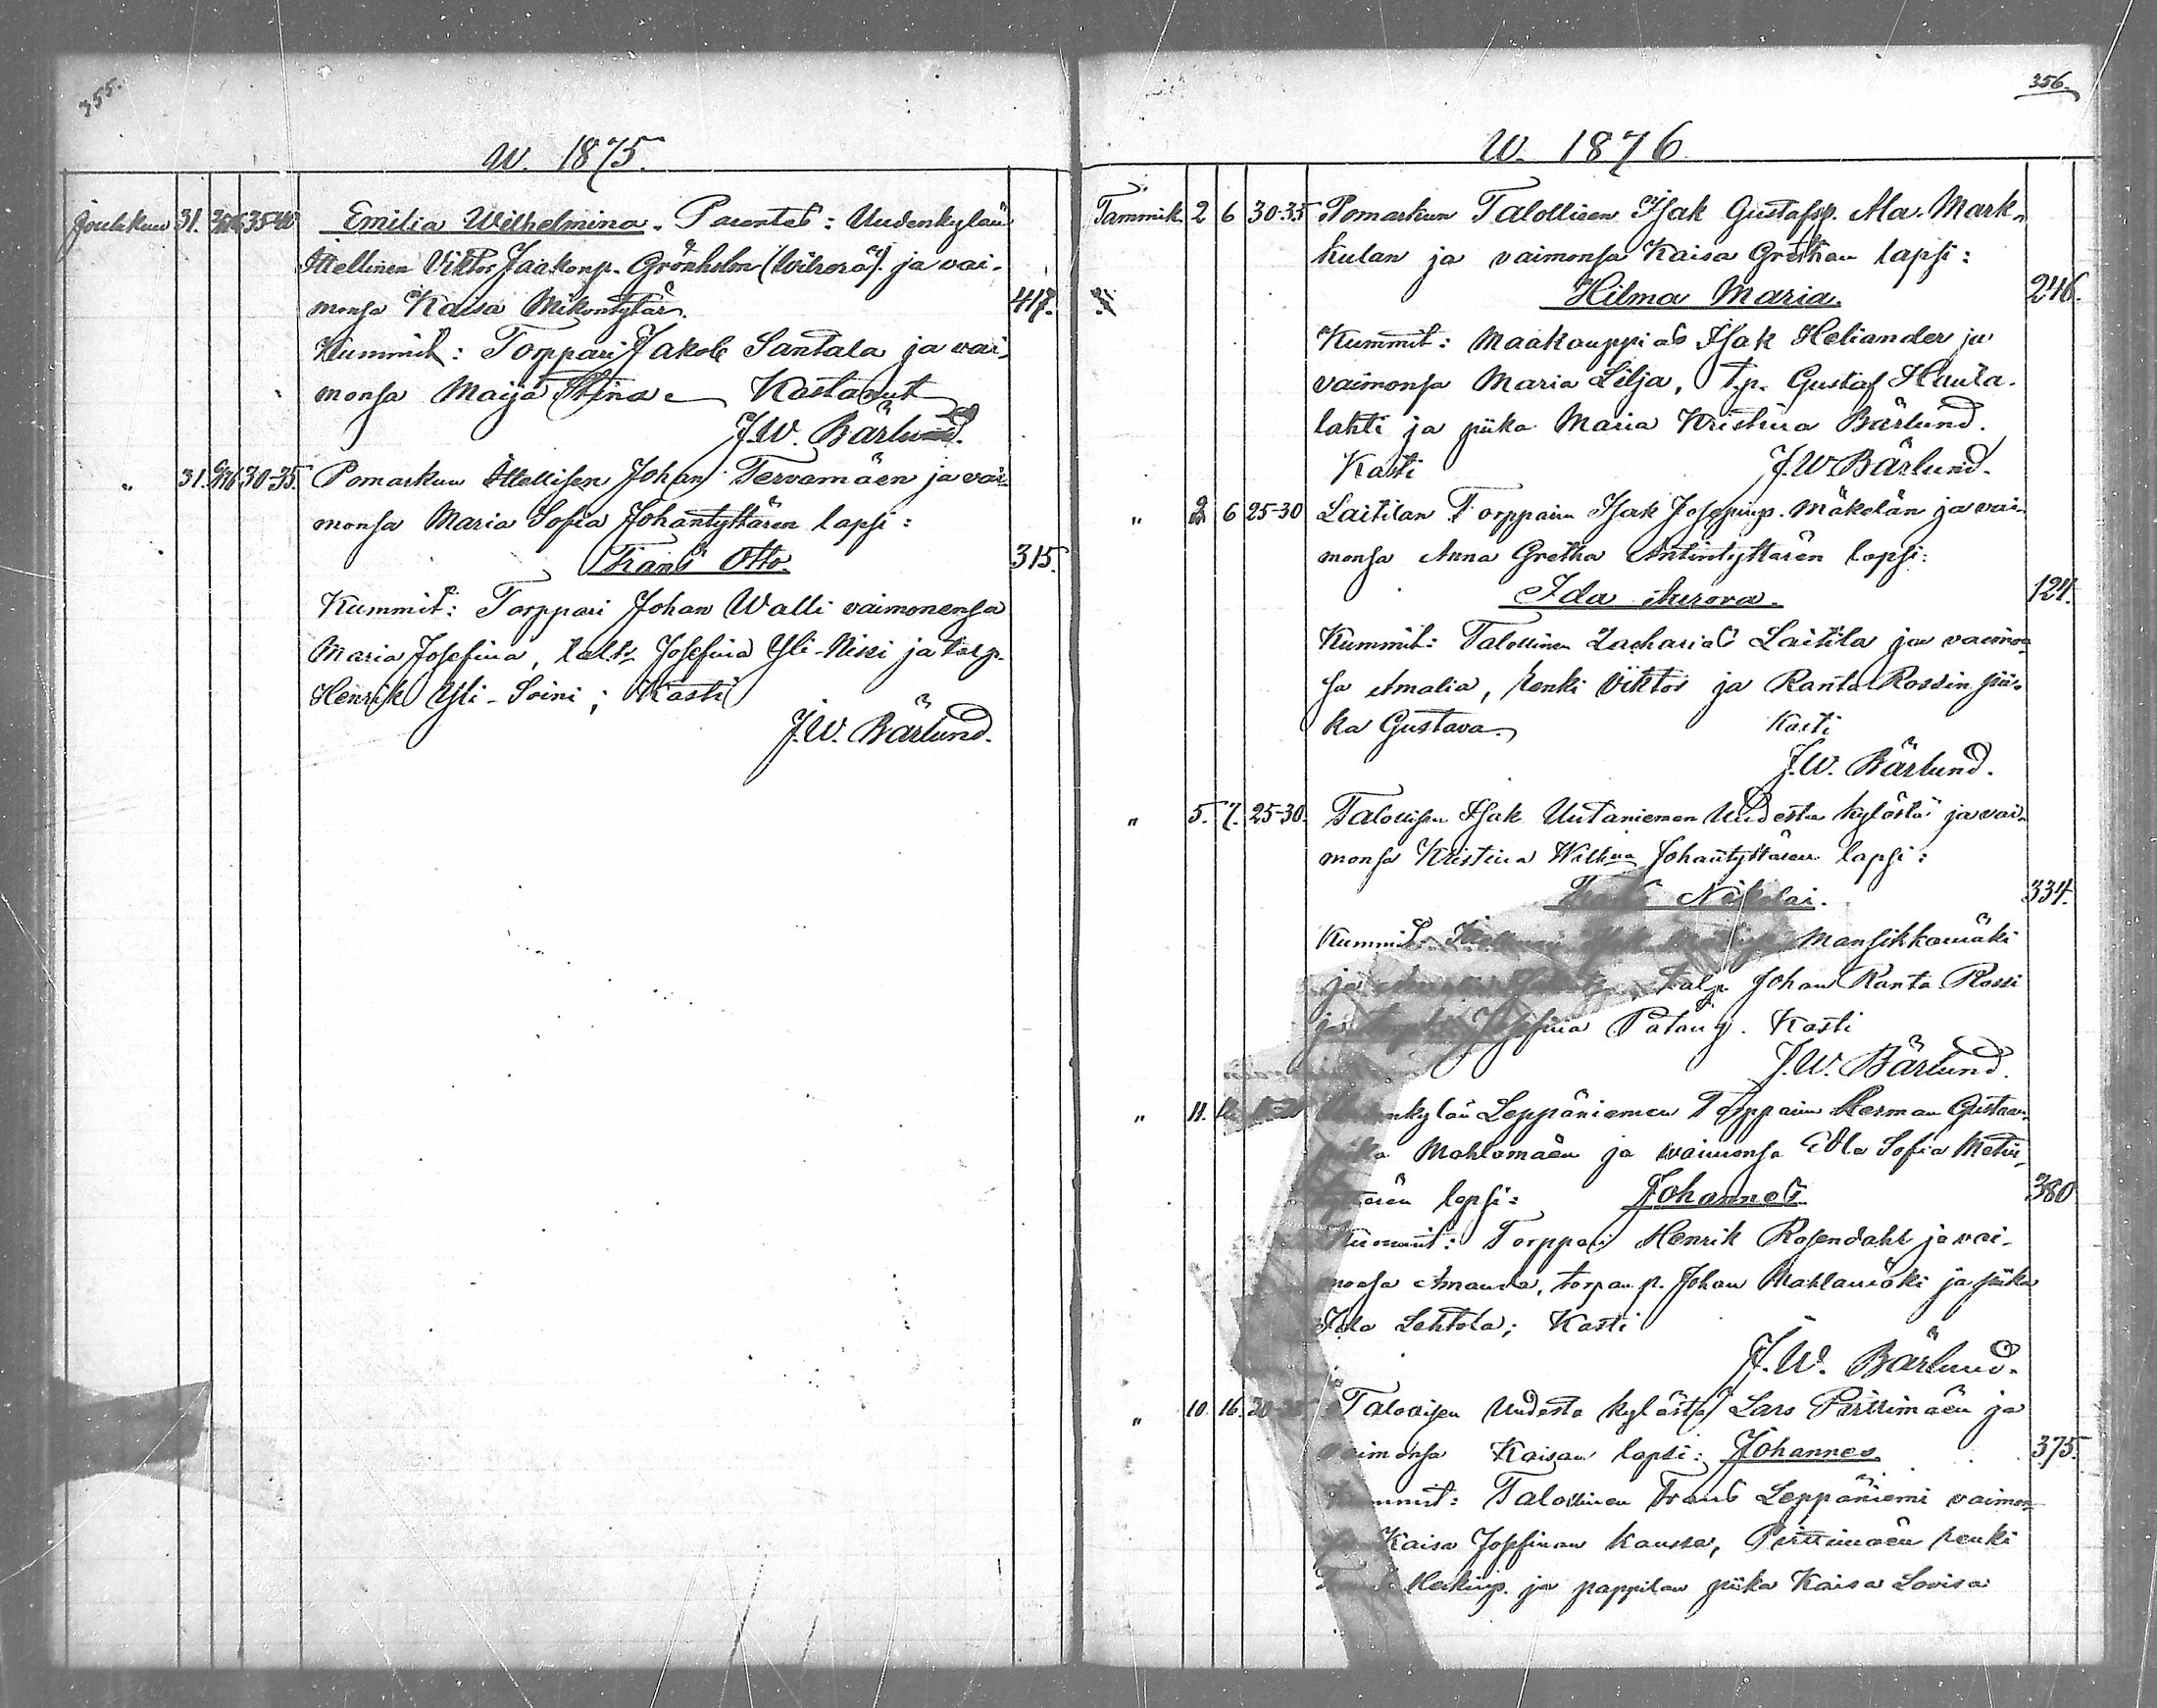 355.
W. 1875.
Joulukuu 31. 35-40 Emilia Wilhelmina. Parentes: Uudenkylän
Itellinen Viktor Jaakonp. Grönholm (Wilherä) ja vai-
monsa Kaisa Mikontytär. 417.
Kummit: Torppari Jakob Santala ja vai-
monsa Maija Stina Kastanut
J.W. Bärlund.
" 31. 30-35. Pomarkun Itellisen Johan Tervamäen ja vai-
monsa Maria Sofia Johantyttären lapsi:
Frans Otto. 315.
Kummit: Torppari Johan Walli vaimonensa
Maria Josefina, talt. Josefina Yli-Nissi ja torp.
Henrik Yli-Soini; Kasti
J.W. Bärlund.
356.
W. 1876
Tammik. 2 6 30-35 Pomarkun Talollisen Isak Gustafsp. Ala-Mark-
kulan ja vaimonsa Kaisa Grethan lapsi:
Hilma Maria. 246.
Kummit: Maakauppias Isak Heliander ja
vaimonsa Maria Lilja, t.p. Gustaf Hauta-
lahti ja piika Maria Kristina Bärlund.
Kasti J.W. Bärlund.
" 2 6 25-30 Laitilan Torpparin Isak Josepinp. Mäkelän ja vai-
monsa Anna Gretha Antintyttären lapsi:
Ida Aurora. 124.
Kummit: Talollinen Zacharias Laitila ja vaimon-
sa Amalia, renki Viktor ja Ranta-Rossin pii-
ka Gustava. Kasti
J.W. Bärlund.
" 5. 7. 25-30. Talollisen Isak Uutaniemen Uudesta kylästä ja vai-
monsa Kristina Wilhna Johantyttären lapsi:
Nikolai. 334.
Kummit: Mansikkamäki
ja talp. Johan Ranta Rossi
ja Josefina Patang. Kasti
J.W. Bärlund.
" 11. Uudenkylän Leppäniemen Torpparin Herman Gustaan-
poika Mahlamäen ja vaimonsa Edla Sofia Matin-
tyttären lapsi: Johannes. 380
Kummit: Torppari Henrik Rosendahl ja vai-
monsa Amanda, torpan p. Johan Mahlamäki ja piika
Ida Lehtola; Kasti
J.W. Bärlund.
" 10. 16. Talollisen Uudesta kylästä Lars Pirttimäen ja
vaimonsa Kaisan lapsi: Johannes. 375.
Kummit: Talollinen Frans Leppäniemi vaimon-
sa Kaisa Josefinan kanssa, Pirttimäen renki
Frans Heikinp. ja pappilan piika Kaisa Lovisa